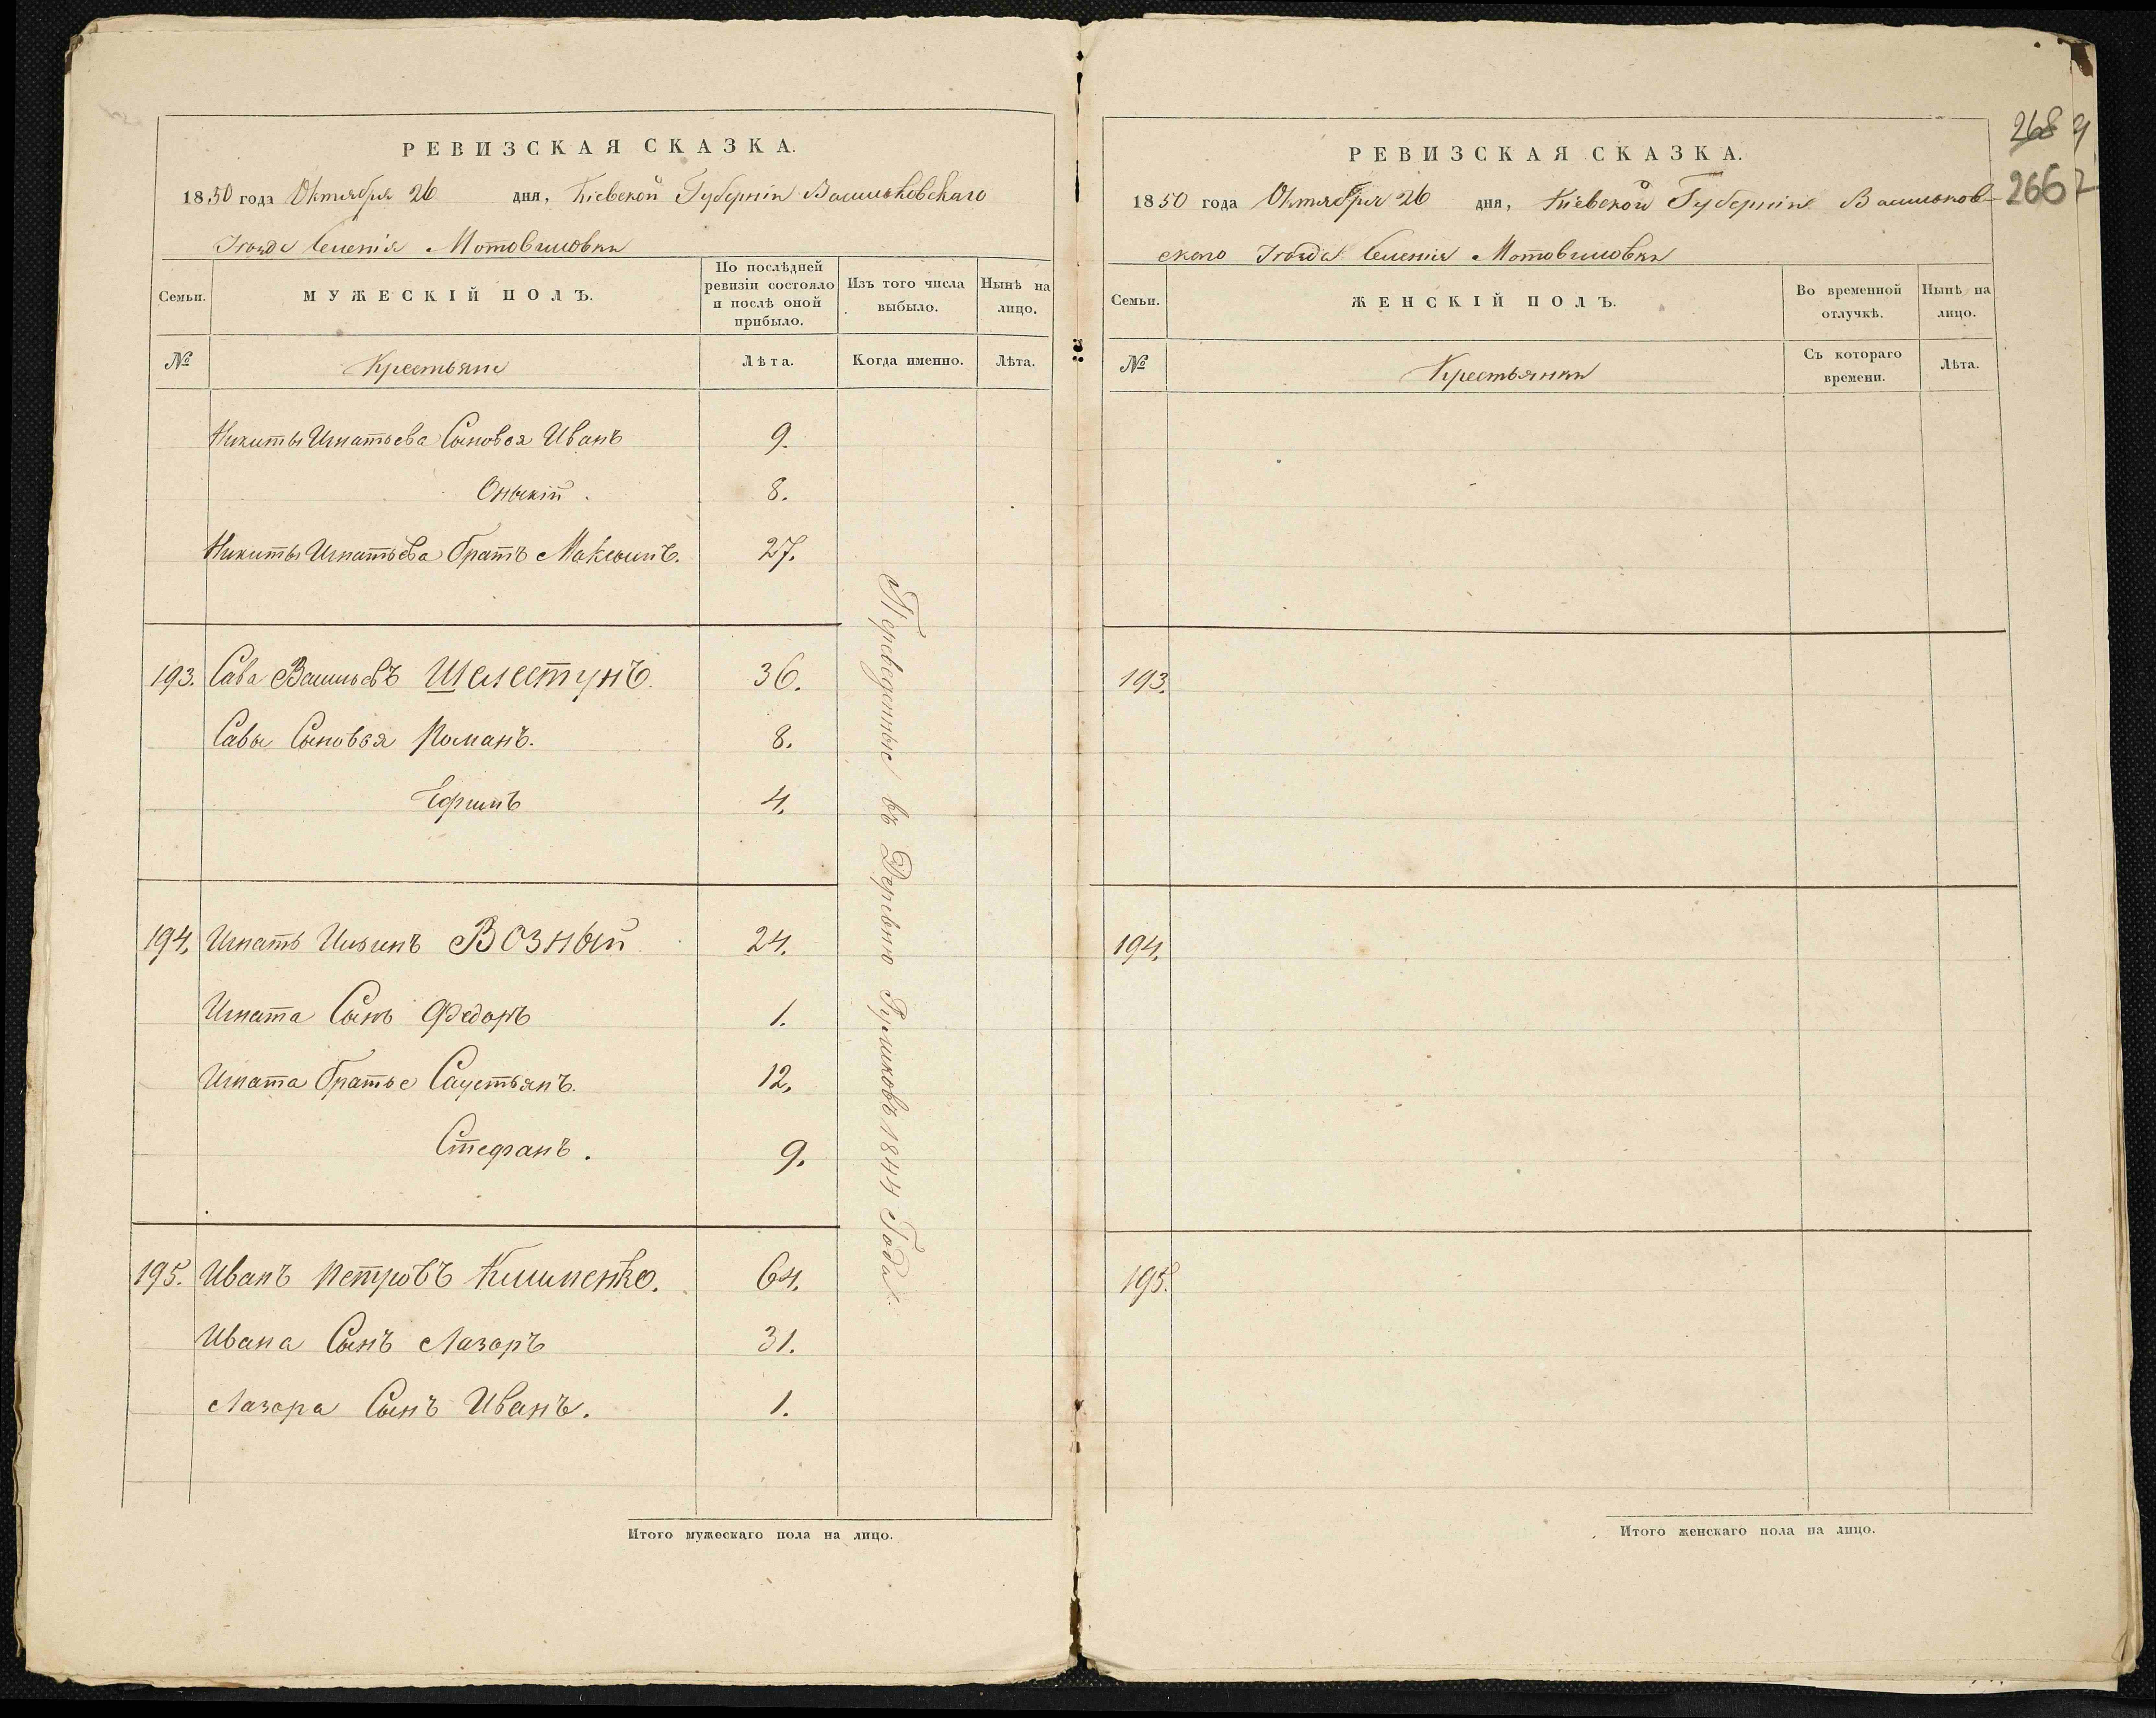 РЕВИЗСКАЯ СКАЗКА.
1850 года Октября 26 дня, Кіевской Губерніи Васильковскаго
Уѣзда Селенія Мотовиловки
Семьи.
МУЖЕСКІЙ ПОЛЪ.
По послѣдней ревизіи состояло и послѣ оной прибыло.
Изъ того числа выбыло.
Нынѣ на лицо.
№
Крестьяне
Лѣта.
Когда именно.
Лѣта.
Никиты Игнатьева Сыновья Иванъ 9.
8.
Никиты Игнатьева братъ Максимъ. 27.
193. Сава Васильевъ Шелестунъ. 36.
Савы Сыновья Романъ. 8.
Ефимъ 4.
194. Игнатъ Ильинъ Возный 24.
Игната Сынъ Федоръ 1.
Игната братье Саустьянъ. 12.
Стефанъ. 9.
195. Иванъ Петровъ Клименко. 64.
Ивана Сынъ Лазаръ 31.
Лазара Сынъ Иванъ. 1.
Переведенные въ Деревню 1844 Года.
Итого мужескаго пола на лицо.
268
2667
РЕВИЗСКАЯ СКАЗКА.
1850 года Октября 26 дня, Кіевской Губерніи Васильков-
скаго Уѣзда Селенія Мотовиловки
Семьи.
ЖЕНСКІЙ ПОЛЪ.
Во временной отлучкѣ.
Нынѣ на лицо.
№
Крестьянки
Съ котораго времени.
Лѣта.
193.
194.
195.
Итого женскаго пола на лицо.